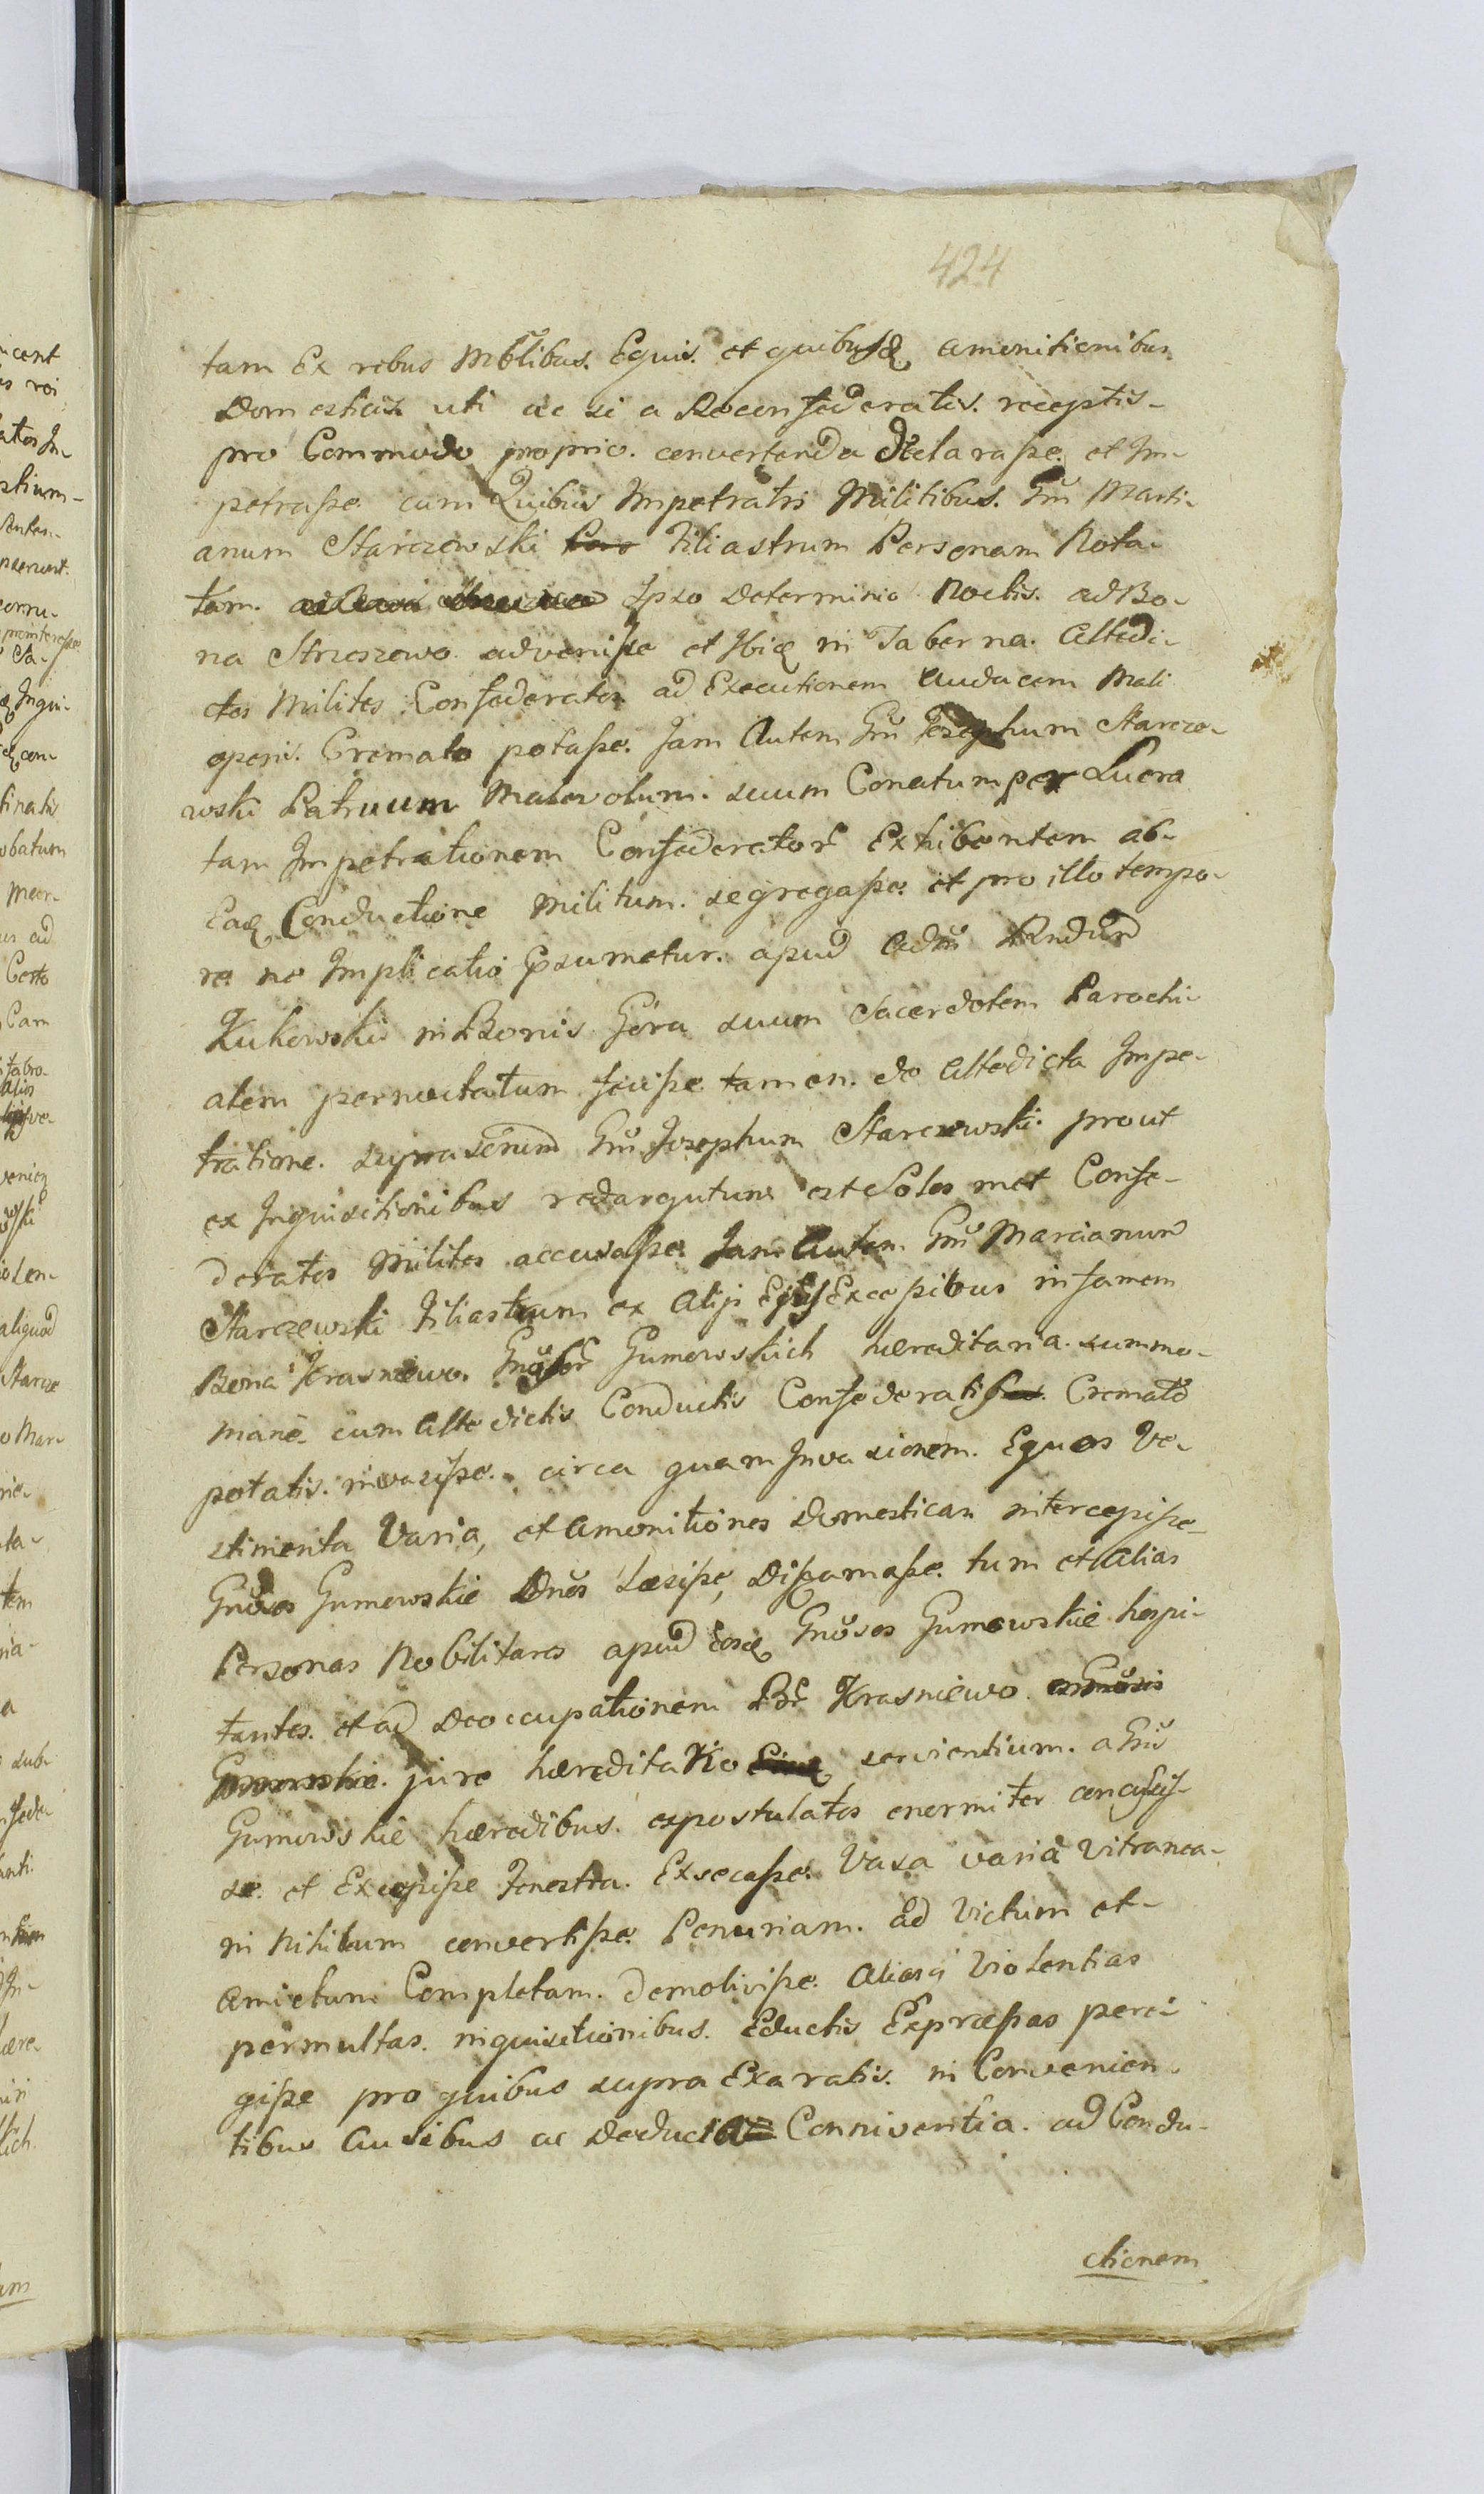 424
tam Ex rebus Mbilibus. Equis. et quibusq amonitionibus
Domesticis uti ac si a Reconfœderatis. receptis-
pro Commodo proprio. convertenda declarasse. et Im-
petrasse cum Quibus Impetratis Militibus. Gm Marti-
anum Starczewski Filiastrum Personam Nota-
tam. Ipso determinio Noctis. ad Bo-
na Strzeszewo advenisse et Ibiq in Taberna. Altedi-
ctos Milites Confœderatos ad Executionem Audacem Mali
operis. Cremato potasse. Jam Autem Gm Josephum Starcze-
wski Patruum Malevolum. suum Conatum per Lucra
tam Impetrationem Confederator Exhibentem ab-
Eaq Conductione Militum. segregasse. et pro illo tempo-
re. ne Implicatio Psumetur. apud Adm Rndum
Kukowski in Bonis Góra suum Sacerdotem Parochi-
alem pernoctatum fecisse tamen. de Altedicta Impe-
tratione. suprascrium Gm Josephum Starczewski. prout
ex Inquisitionibus redargutum est Solos met Confe-
deratos Milites accusasse. Jam Autem Gm Marcianum
Starczewski Filiastrum ex Alijs Excessibus infamem
Bona Krasniewo. Gumowskich hæreditaria. summo-
mane cum Alte dictis Conductis Confœderatis Cremato
potatis. invasisse. circa quam Invasionem. Equos Ve-
stimenta Varia, et Amonitiones Domesticas intercepisse-
Gnosos Gumowskie Dnos Læsisse, Diffamasse. tum et Alias
Personas Nobilitares apud eosq Gnosos Gumowskie hospi-
tantes. et ad Deoccupationem Br Krasniewo
jure hæreditario servientium. a Gm
Gumowskie hæredibus. expostulatos enormiter concussis-
se. et Excepisse Fenestra. Exsecasse. Vasa varia Vitranea-
in Nihilum convertisse. Penuriam. ad Victum et-
amictum Completam. Demolivisse. Aliasq Violentias
permultas. inquisitionibus. Eductis Expræssas pere-
gisse pro quibus supra Exaratis. in Convenien-
tibus Ausibus ac deducta Conniventia. ad Condu-
ctionem